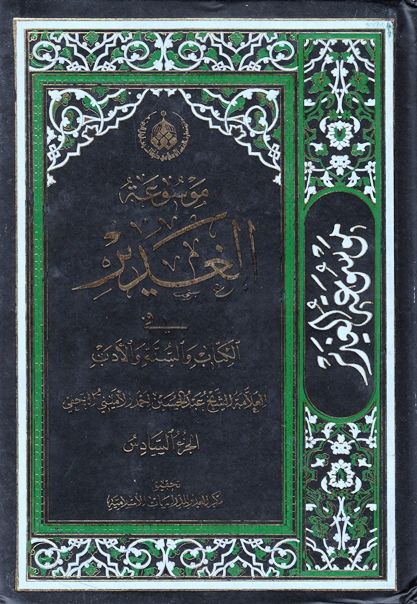 موسوعة
الغدير
في
الكتاب والسنة والأدب
العلامة الشيخ عبد الحسين أحمد الأميني النجفي
الجزء السادس
تحقيق
مركز الغدير للدراسات الإسلامية
موسوعة الغدير